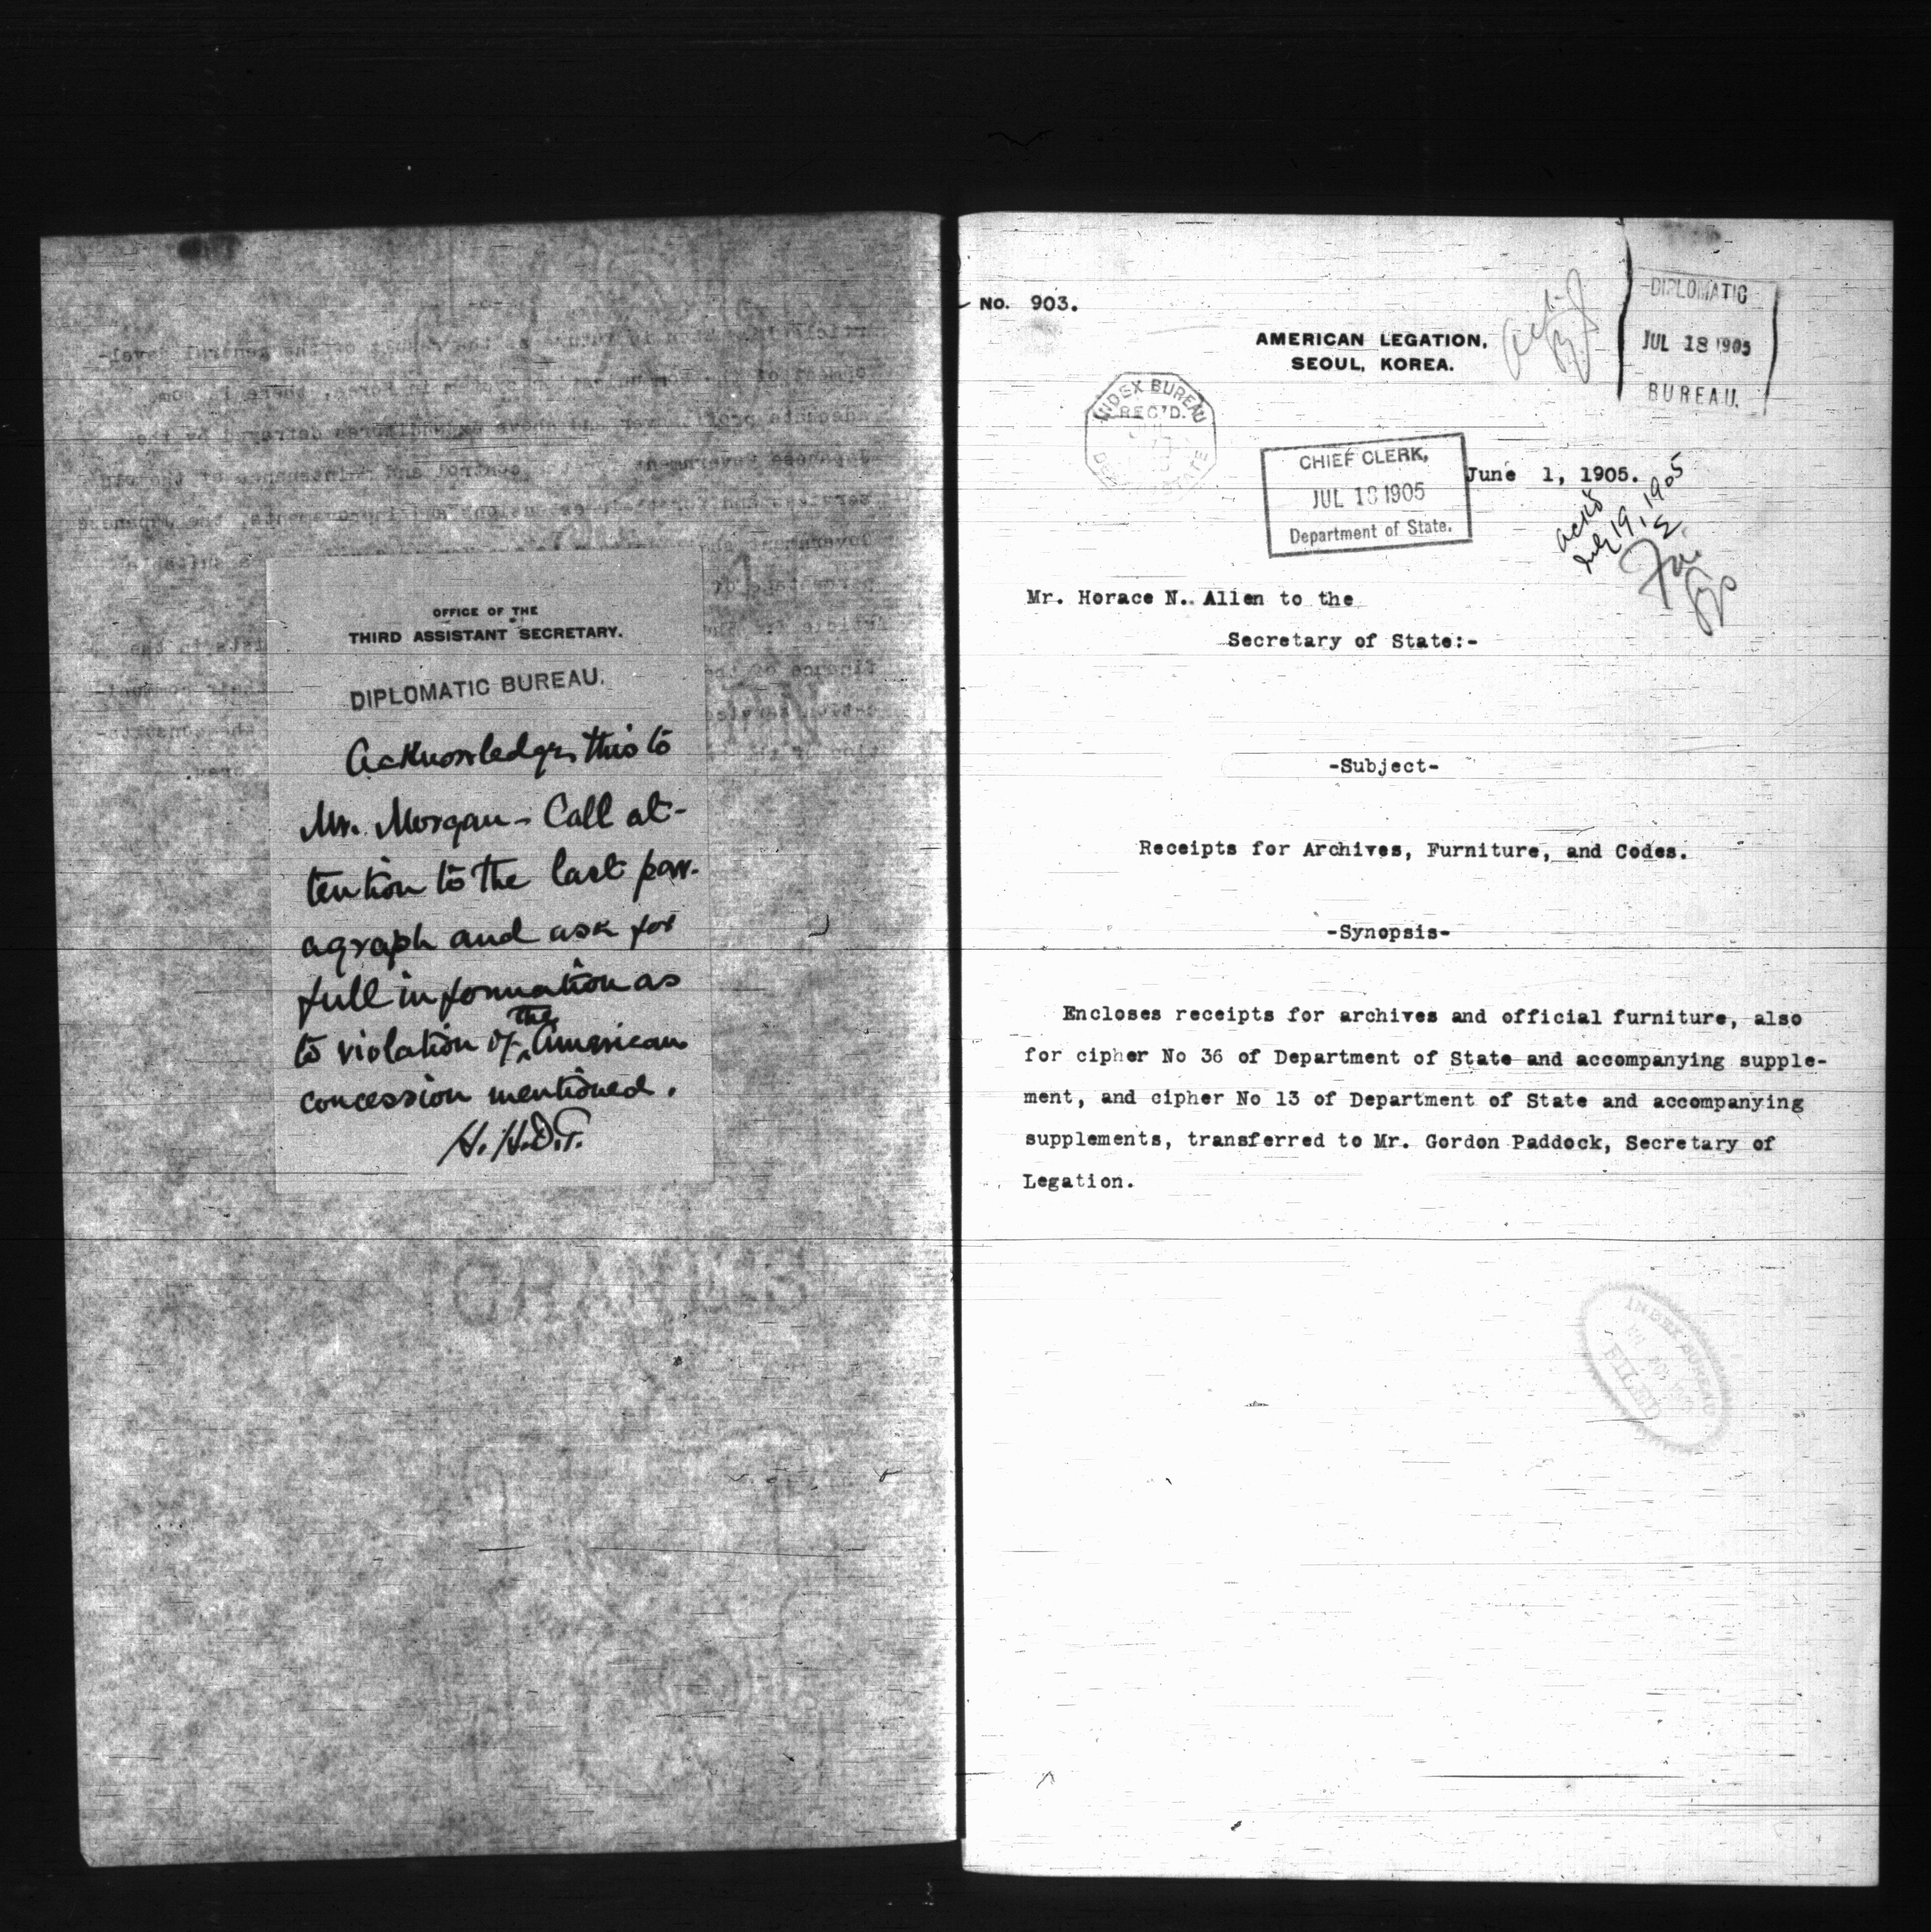 OFFICE OF THE
THIRD ASSISTANT SECRETARY.
DIPLOMATIC BUREAU.
Acknowledge this to
Mr. Morgan - Call at-
tention to the last par-
agraph and ask for
full information as
to violation of the American
concession mentioned.
H.H.D.P.
CRANE'S
No. 903.
AMERICAN LEGATION,
SEOUL, KOREA.
DIPLOMATIC
JUL 18 1905
BUREAU.
INDEX BUREAU
REC'D.
CHIEF CLERK,
JUL 18 1905
Department of State.
June 1, 1905.
ack'd
July 19, 1905
Mr. Horace N. Allen to the
Secretary of State:-
-Subject-
Receipts for Archives, Furniture, and Codes.
-Synopsis-
Encloses receipts for archives and official furniture, also
for cipher No 36 of Department of State and accompanying supple-
ment, and cipher No 13 of Department of State and accompanying
supplements, transferred to Mr. Gordon Paddock, Secretary of
Legation.
INDEX BUREAU
FILED